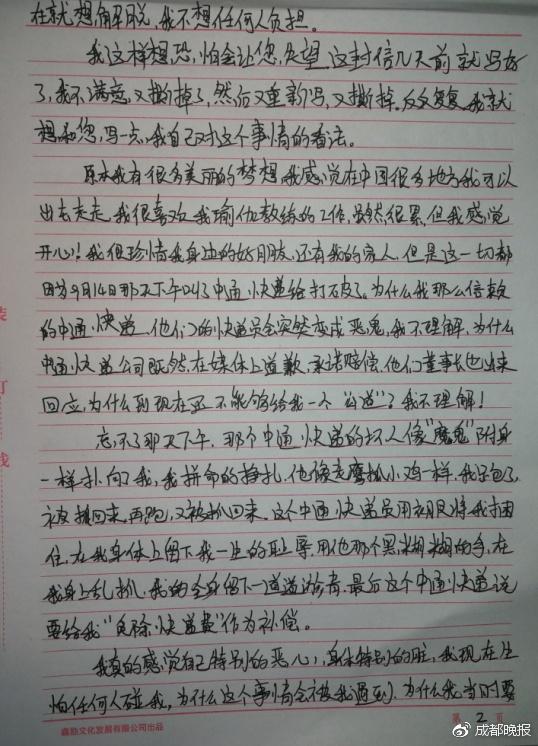 在就想解脱,我不想任何人负担。
我这样想恐,怕会让您,失望,这封信几天前就写好
了,我不满意,又撕掉了,然后又重新写,又撕掉。反反复复,我就
想和您,写一点,我自己对这个事情的看法。
原本我有很多美丽的梦想,我感觉在中国很多地方我可以
出去走走,我很喜欢我瑜伽教练的工作,虽然很累,但我感觉
开心!我很珍惜我身边的好朋友,还有我的家人,但是这一切都
因为9月14日那天下午叫了中通快递给打破了。为什么我那么信赖
的中通,快递,他们的快递员会突然变成恶鬼,我不理解,为什么
中通快递公司既然,在媒体上道歉,承诺赔偿,他们董事长也出来
回应,为什么到现在还不能够给我一个"公道"?我不理解!
忘不了那天下午,那个中通快递的坏人像"魔鬼"附身
一样扑向了我,我拼命的挣扎,他像老鹰抓小鸡一样,我跑了,
被抓回来,再跑,又被抓回来。这个中通快递员用衣服将我捆
住,在我身体上留下我一生的耻辱,用他那个黑糊糊的手,在
我身上乱抓,我的全身留下一道道淤青,最后这个中通快递说
要给我"免除快递费"作为补偿。
我真的感觉自己特别的恶心,身体特别的脏,我现在生
怕任何人碰我,为什么这个事情会被我遇到,为什么我当时要
鑫励文化发展有限公司出品
第 2 页
装
订
线
成都晚报